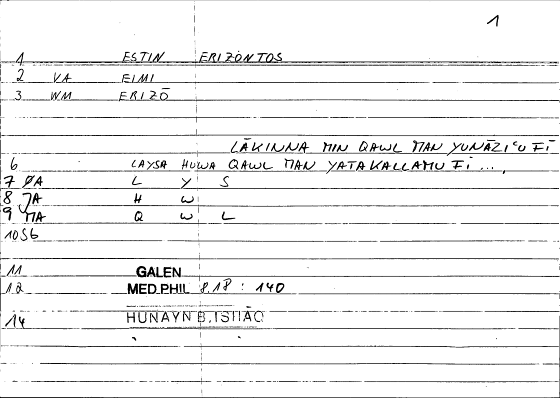 1
1 ESTIN ERIZONTOS
2 VA EIMI
3 WM ERIZŌ
LĀKINNA MIN QAWL MAN YUNĀZIʿU FĪ
6 LAYSA HUWA QAWL MAN YATAKALLAMU FĪ ...,
7 ØA L Y S
8 JA H W
9 MA Q W L
10 S6
11 GALEN
12 MED.PHIL 8,18 : 140
14 HUNAYN B.ISHAQ